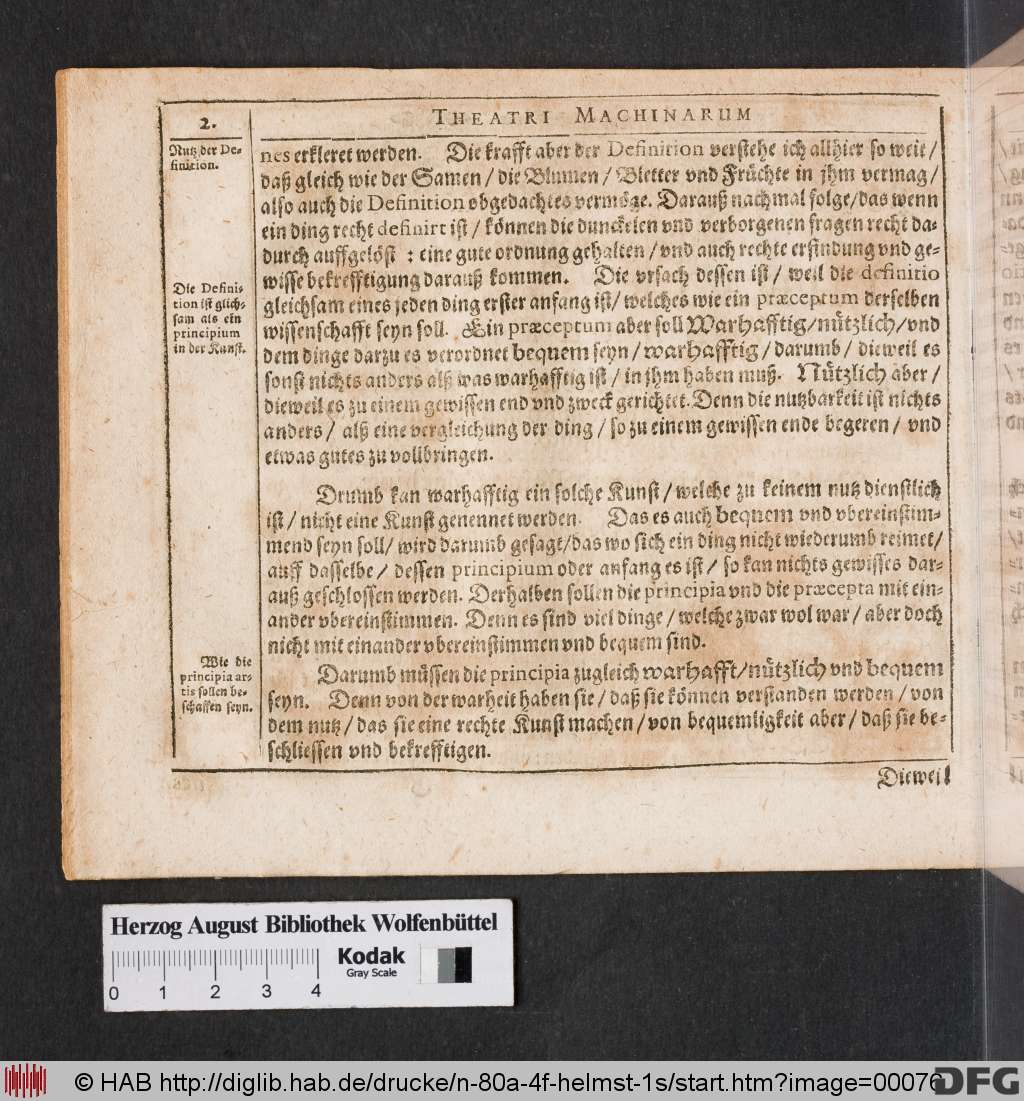 2.
THEATRI MACHINARUM
Nutz der De-
finition.
nes erkleret werden. Die krafft aber der Definition verstehe ich allhier so weit /
daß gleich wie der Samen / die Blumen / Bletter vnd Früchte in jhm vermag /
also auch die Definition obgedachtes vermöge. Darauß nachmal folge / das wenn
ein ding recht definirt ist / können die dunckelen vnd verborgenen fragen recht da-
durch auffgelöst : eine gute ordnung gehalten / vnd auch rechte erfindung vnd ge-
wisse bekrefftigung darauß kommen. Die vrsach dessen ist / weil die definitio
Die Defini-
tion ist glich-
sam als ein
principium
in der Kunst.
gleichsam eines jeden ding erster anfang ist / welches wie ein præceptum derselben
wissenschafft seyn soll. Ein præceptum aber soll Warhafftig / nützlich / vnd
dem dinge darzu es verordnet bequem seyn / warhafftig / darumb / dieweil es
sonst nichts anders alß was warhafftig ist / in jhm haben muß. Nützlich aber /
dieweil es zu einem gewissen end vnd zweck gerichtet. Denn die nutzbarkeit ist nichts
anders / alß eine vergleichung der ding / so zu einem gewissen ende begeren / vnd
etwas gutes zu vollbringen.
Drumb kan warhafftig ein solche Kunst / welche zu keinem nutz dienstlich
ist / nicht eine Kunst genennet werden. Das es auch bequem vnd vbereinstim-
mend seyn soll / wird darumb gesagt / das wo sich ein ding nicht wiederumb reimet /
auff dasselbe / dessen principium oder anfang es ist / so kan nichts gewisses dar-
auß geschlossen werden. Derhalben sollen die principia vnd die præcepta mit ein-
ander vbereinstimmen. Denn es sind viel dinge / welche zwar wol war / aber doch
nicht mit einander vbereinstimmen vnd bequem sind.
Wie die
principia ar-
tis sollen be-
schaffen seyn.
Darumb müssen die principia zugleich warhafft / nützlich vnd bequem
seyn. Denn von der warheit haben sie / daß sie können verstanden werden / von
dem nutz / das sie eine rechte Kunst machen / von bequemligkeit aber / daß sie be-
schliessen vnd bekrefftigen.
Dieweil
Herzog August Bibliothek Wolfenbüttel
Kodak
Gray Scale
0 1 2 3 4
© HAB http://diglib.hab.de/drucke/n-80a-4f-helmst-1s/start.htm?image=00076
DFG